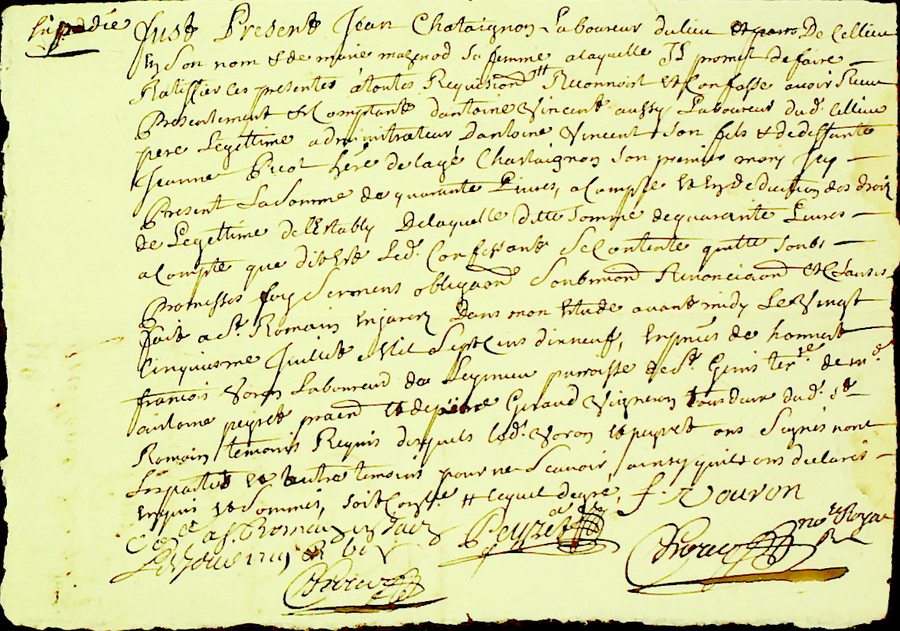 Expédiée
Fust Present Jean Chataignon Laboureur dulieu et parro. De Cellieu
En Son nom & de marie magnod sa femme alaquelle Il promet defaire
Ratiffier ces presentes àtoutes Requisitions Reconnoist et Confesse avoir Reçeu
Presentement & Comptant dantoine Vincent aussy Laboureur dud. Cellieu
pere Legitime administrateur Dantoine Vincent Son fils & dedeffunte
Jeanne Picot delage Chastaignon Son premier mary Icy
Present La Somme de quarante Livres, a Compte et En deduction des droits
de Legitime De laquelle ditte Somme dequarante Livres
a Compte que dit est Led. Confessant Se Contente quitte Soubs
Promesses foy Serment obligaon Soubmions Renonciaons et Clauses
fait a St. Romain enjarez dans mon Etude avant midy Le Vingt
Cinquiesme Juillet Mil Sept Cens dixneuf, En pnce de honneste
francois Voron Laboureur de parroisse de St. Genis ter.re de Mr.
antoine peyret praend et de pierre Giraud Vigneron dud. St.
Romain temoins Requis desquels Led. Voron et peyret ont Signés non
Les parties et autre temoin pour ne Scavoir, ainsy quils ont declarés
Enquis et Sommés, Soit Conlle. f. Vouron
Conlé a St. Romain en Jarez
Peyret
no.re Royal